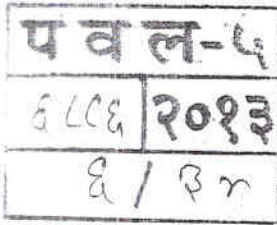 पवल-५
६८८६ २०१३
६ / ३४